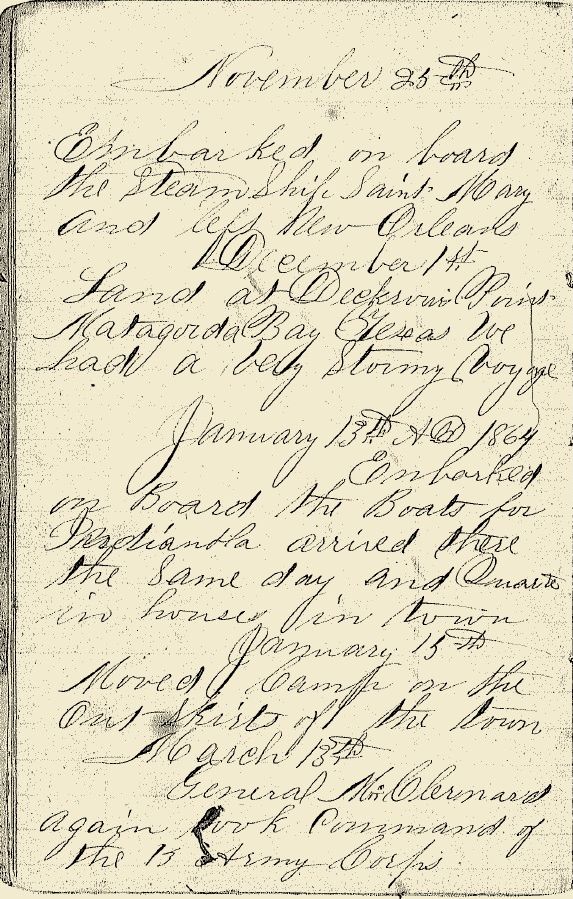 November 25th
Embarked on board
the Steam Ship Saint Mary
and left New Orleans
December 1st
Land at Deckrows Point
Matagorda Bay Texas We
had a very Stormy Voygge
January 13th AD 1864
Embarked
on Board the Boats for
Indianola arrived there
the Same day and Quarte
in houses in town
January 15th
Moved Camp on the
Out Skirts off the town
March 13th
General McClernard
again took Command of
the 13 Army Corps